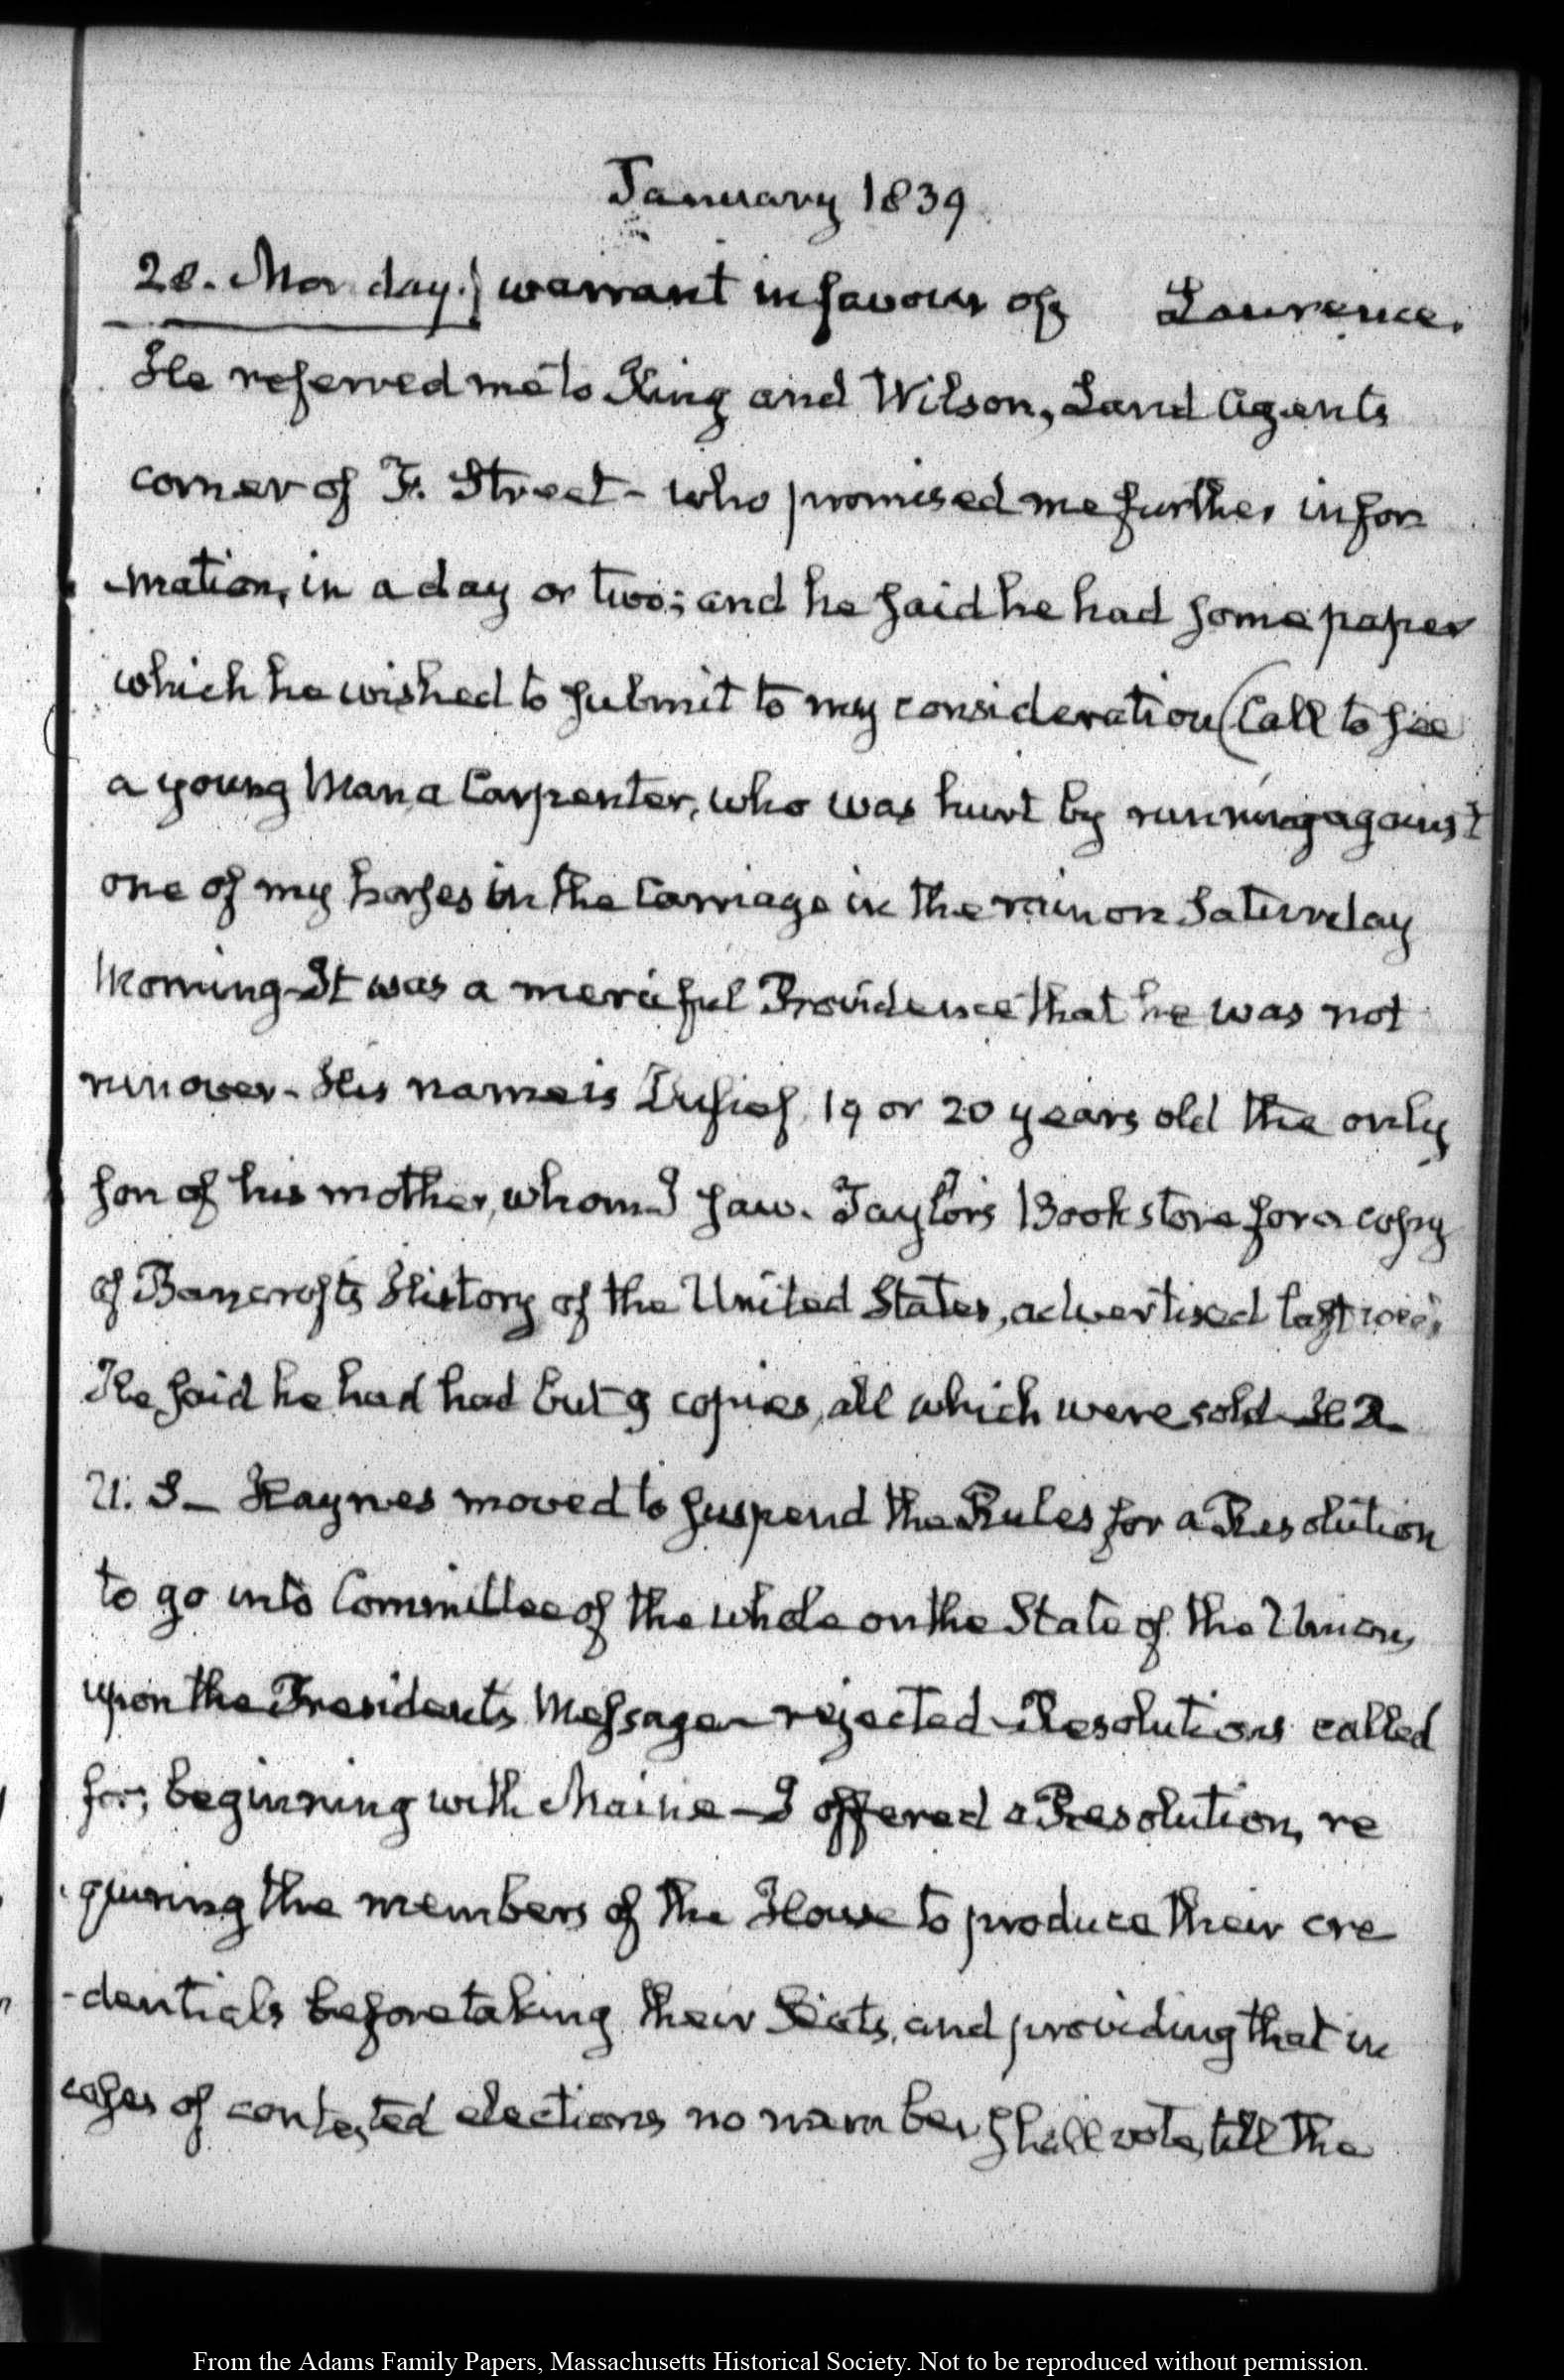 January 1839
28. Monday.} warrant in favour of Laurence.
He referred me to King and Wilson, Land Agents
corner of F. Street - who promised me further infor
-mation, in a day or two; and he said he had some paper
which he wished to submit to my consideration (Call to see
a young Man a Carpenter, who was hurt by running against
one of my horses in the Carriage in the rain on Saturday
Morning - It was a merciful Providence that he was not
run over - His name is 19 or 20 years old the only
son of his mother, whom I saw. Taylor's Bookstore for a copy
of Bancroft's History of the United States, advertised last
He said he had had but 9 copies, all which were sold - H R
U. S - Haynes moved to suspend the Rules for a Resolution
to go into Committee of the whole on the State of the Union,
upon the Presidents Message - rejected - Resolutions called
for, beginning with Maine - I offered a Resolution, re
quiring the members of the House to produce their cre
-dentials before taking their Seats, and providing that in
cases of contested elections no member shall vote, till the
From the Adams Family Papers, Massachusetts Historical Society. Not to be reproduced without permission.